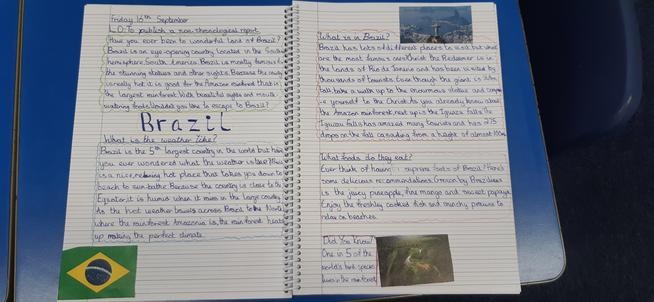 Friday 16th September
L.O: To publish a non-chronological report.
Have you ever been to wonderful land of Brazil?
Brazil is an eye-opening country located in the South
hemisphere, South America. Brazil is mostly famous for
the stunning statues and other sights. Because the country
is really hot it is good for the Amazon rainforest that is
the largest rainforest. With beautiful sights and mouth-
watering foods, wouldn't you love to escape to Brazil?
Brazil
What is the weather like?
Brazil is the 5th largest country in the world but have
you ever wondered what the weather is like? There
is a nice, relaxing hot place that takes you down to
beach to sun-bathe. Because the country is close to the
Equator, it is humid when it was in the large country.
As the hot weather travels across Brazil to the North
where the rainforest Amazonia is, the rainforest heats
up making the perfect climate.
What is in Brazil?
Brazil has lots of different places to visit but what
are the most famous ones? Christ the Redeemer is in
the lands of Rio de Janeiro and has been visited by
thousands of tourists. Even though the giant is
tall, take a walk up to the enormous statue and compare
yourself to the Christ. As you already know about
the Amazon rainforest, next up is the Iguazu falls. The
Iguazu falls has amazed many tourists and has 275
drops on the fall cascading from a height of almost 100m.
What foods do they eat?
Ever think of having supreme foods of Brazil? Here's
some delicious recommendations. Grown by Brazilians
is the juicy pineapple, fine mango and sweet papaya.
Enjoy the freshly cooked fish and crunchy prawns to
relax on beaches.
Did You Know?
One in 5 of the
world's bird species
lives in the rainforest